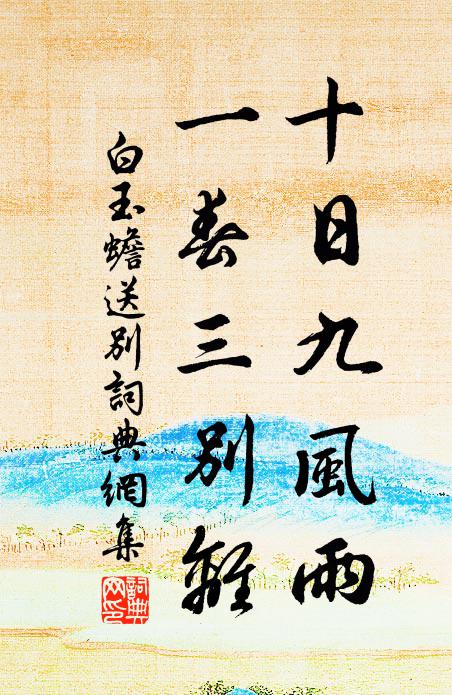 十日九風雨
一春三別離
白玉蟾送別詞典網集
詞典網印